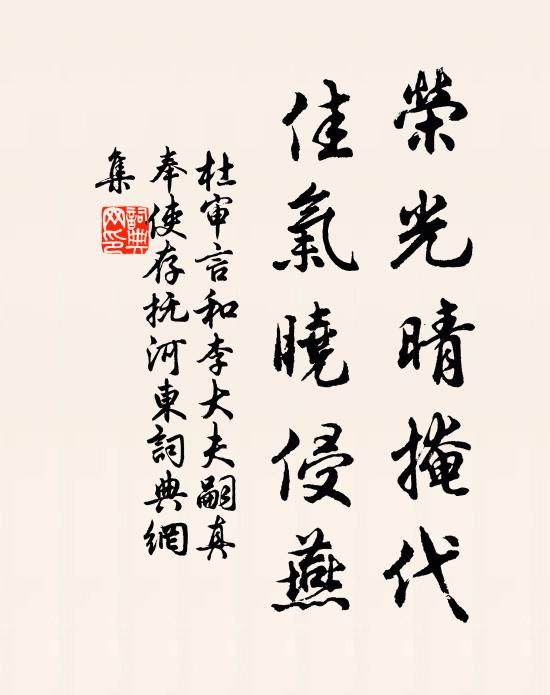 榮光晴掩代
佳氣曉侵燕
杜审言和李大夫嗣真
奉使存抚河東詞典網
集
詞典網印